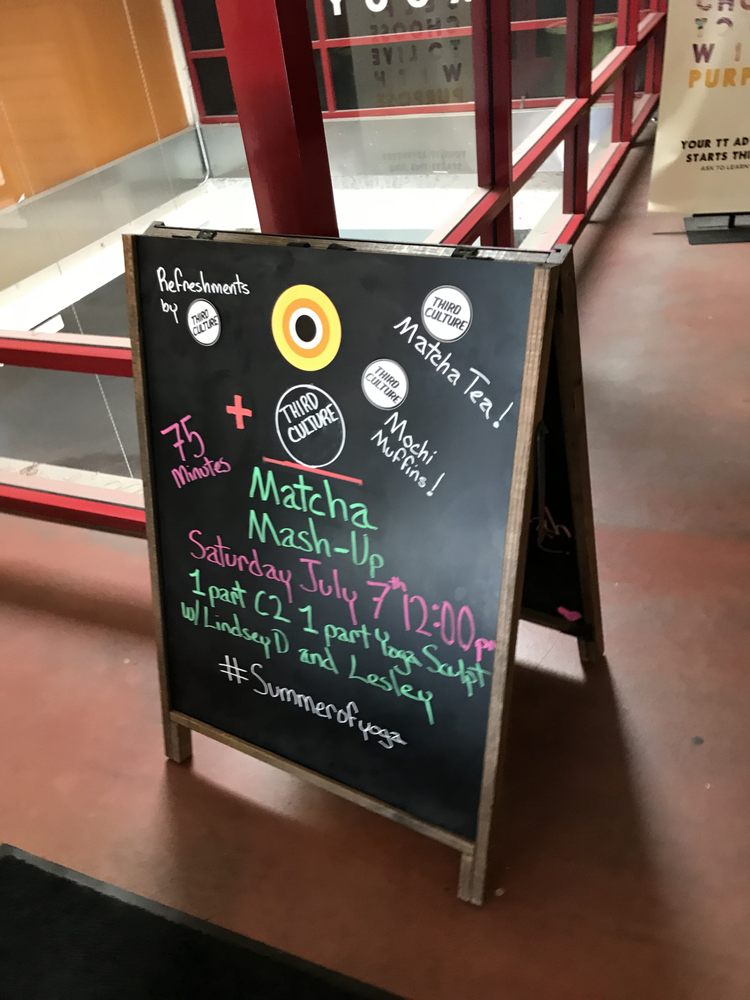 Refreshments
by THIRD
CULTURE
THIRD
CULTURE
Matcha Tea!
THIRD
CULTURE
Mochi
Muffins!
75
Minutes
+
THIRD
CULTURE
Matcha
Mash-Up
Saturday July 7th 12:00pm
1 part C2 1 part Yoga Sculpt
w/ Lindsey D and Lesley
#Summerofyoga
TO
WI
PURP
YOUR TT AD
STARTS THI
ASK TO LEARN